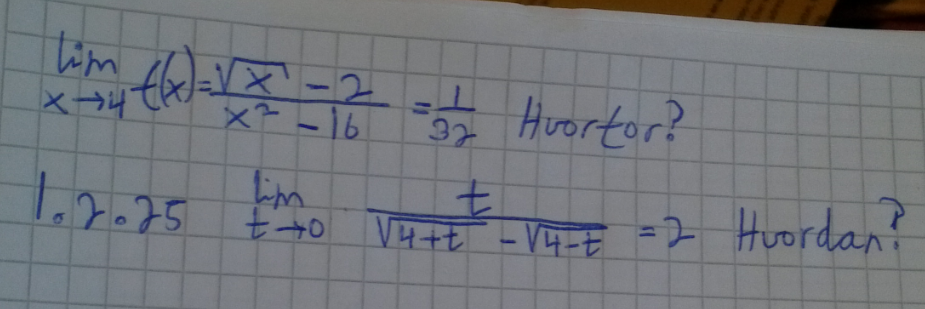 lim x→4 f(x) = (√x - 2)/(x² - 16) = 1/32 Hvorfor?
1.2.25 lim t→0 t/(√(4+t) - √(4-t)) = 2 Hvordan?